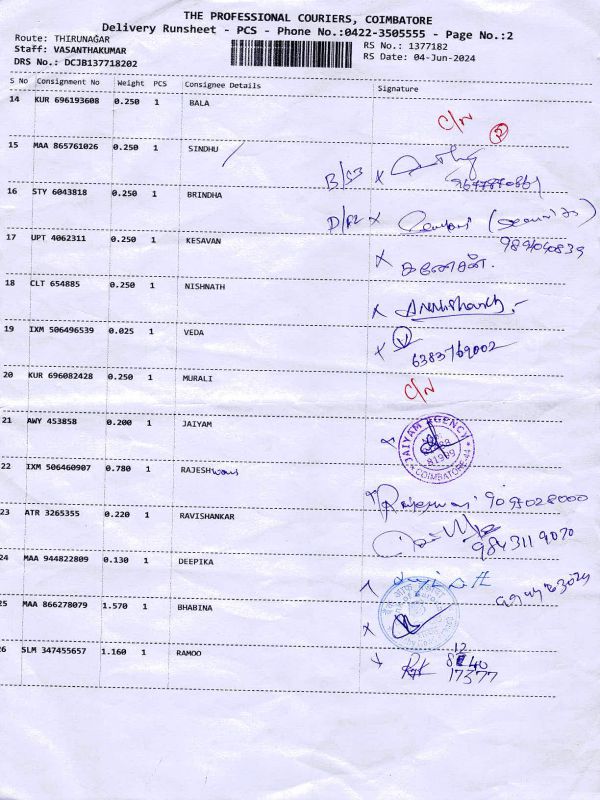 THE PROFESSIONAL COURIERS, COIMBATORE
Delivery Runsheet - PCS - Phone No.:0422-3505555 - Page No.:2
Route: THIRUNAGAR RS No.: 1377182
Staff: VASANTHAKUMAR RS Date: 04-Jun-2024
DRS No.: DCJB137718202
S No Consignment No Weight PCS Consignee Details Signature
14 KUR 696193608 0.250 1 BALA C/N
15 MAA 865761026 0.250 1 SINDHU B/S3
16 STY 6043818 0.250 1 BRINDHA (security)
17 UPT 4062311 0.250 1 KESAVAN கணேசன்.
18 CLT 654885 0.250 1 NISHNATH
19 IXM 506496539 0.025 1 VEDA V 6383769002
20 KUR 696082428 0.250 1 MURALI C/N
21 AWY 453858 0.200 1 JAIYAM JAIYAM AGENCY COIMBATORE-44
22 IXM 506460907 0.780 1 RAJESHwari
23 ATR 3265355 0.220 1 RAVISHANKAR 9843119070
24 MAA 944822809 0.130 1 DEEPIKA
25 MAA 866278079 1.570 1 BHABINA
26 SLM 347455657 1.160 1 RAMOO 17377